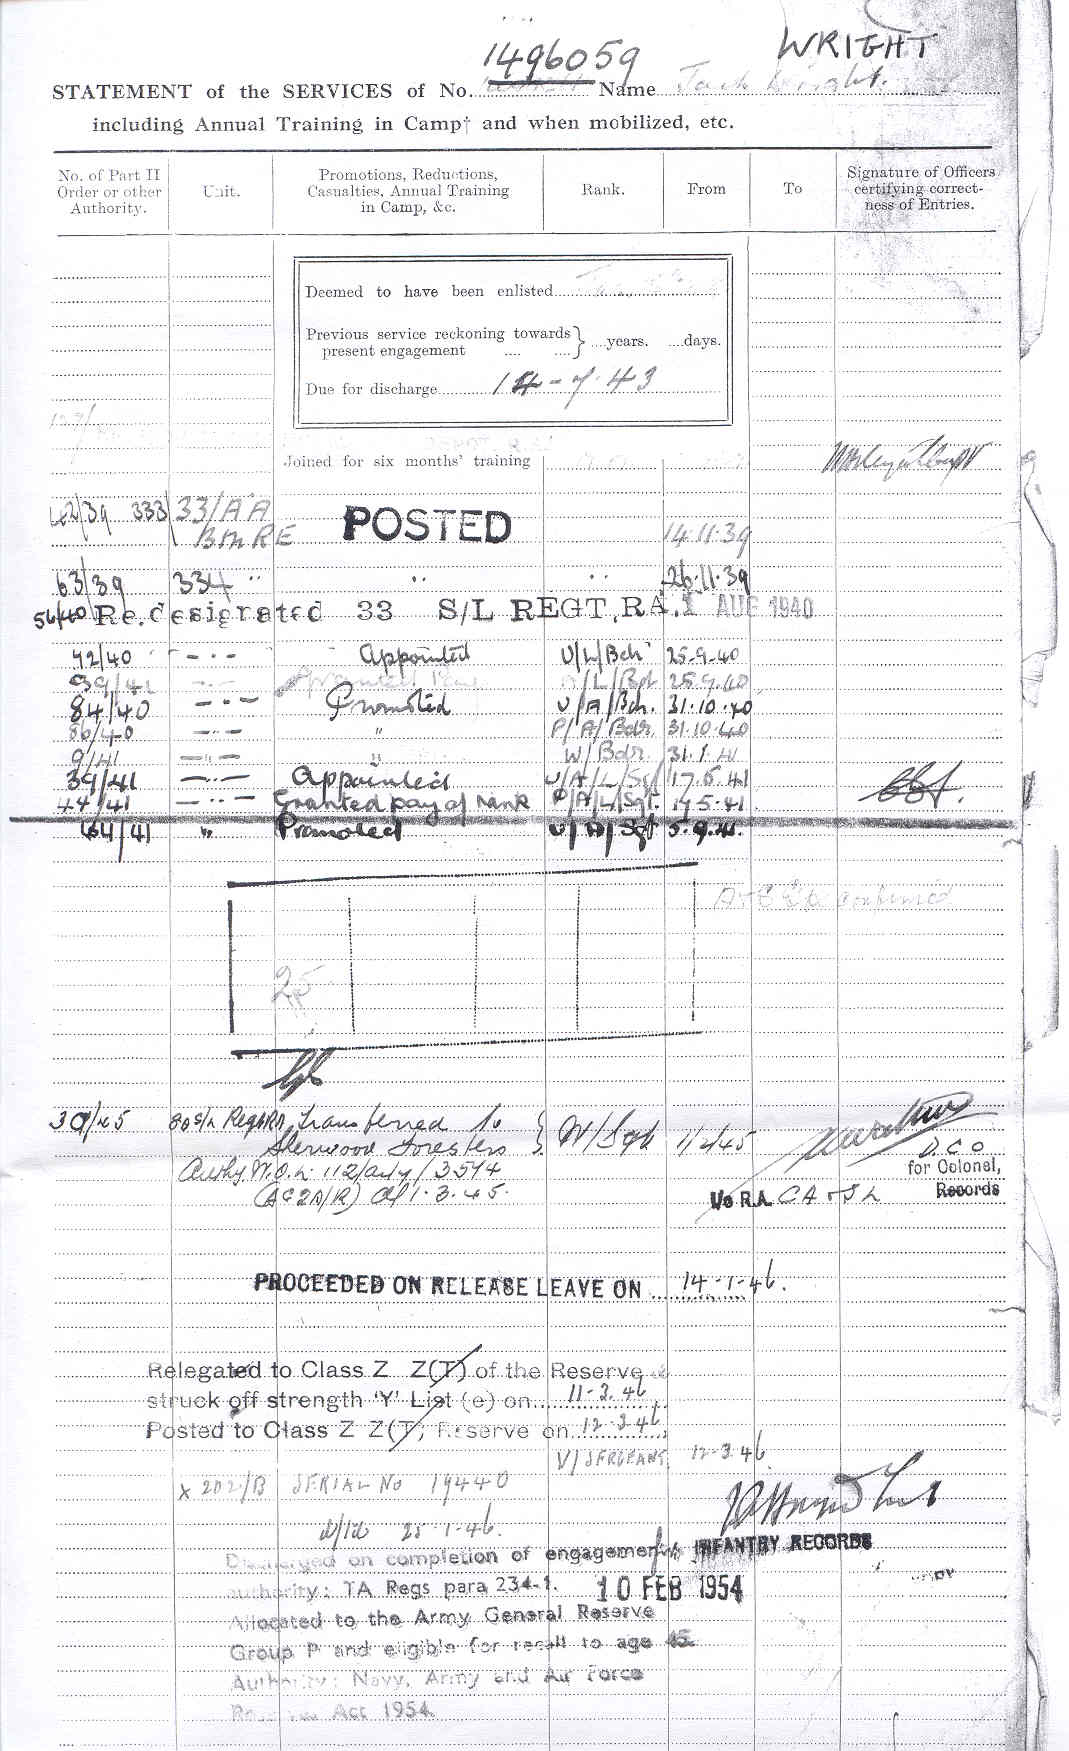 1496059 WRIGHT
STATEMENT of the SERVICES of No. Name Jack Wright.
including Annual Training in Camp† and when mobilized, etc.
No. of Part II Order or other Authority.
Unit.
Promotions, Reductions, Casualties, Annual Training in Camp, &c.
Rank.
From
To
Signature of Officers certifying correctness of Entries.
Deemed to have been enlisted
Previous service reckoning towards present engagement .... .... } ....years. ....days.
Due for discharge 14-7-43
Joined for six months' training
62/39 333 33/AA POSTED 14.11.39
Bn RE
63/39 334 " " " 26.11.39
56/40 Re.designated 33 S/L REGT,RA. 1 AUG 1940
72/40 - . - Appointed U/L/Bdr 25-9-40
39/41 - . - /L/Bdr 25.9.40
84/40 - . - Promoted U/A/Bdr. 31.10.40
86/40 - . - " P/A/Bdr. 31.10.40
9/41 - . - " W/Bdr. 31.1.41
39/41 - . - Appointed U/A/L/Sgt 17.5.41
44/41 - . - Granted pay of rank P/A/L/Sgt. 17.5.41
64/41 " Promoted U/A/Sgt 5.9.41.
confirmed
25
39/45 80 S/L Regt RA Transferred to } W/Sgt 1/2/45
Sherwood Foresters
Authy W.O.L. 112/arty/3574
(AG2A/R) d/1.3.45.
D.C.O
for Colonel,
i/c R.A. CA & SL Records
PROCEEDED ON RELEASE LEAVE ON 14-1-46.
Relegated to Class Z Z(T) of the Reserve &
struck off strength 'Y' List (e) on 11-3.46
Posted to Class Z Z(T) Reserve on 12-3.46
W/SERGEANT 12-3.46
X 202/B SERIAL No 19440
d/td 25-1-46.
Discharged on completion of engagement INFANTRY RECORDS
authority: TA Regs para 234-1. 10 FEB 1954
Allocated to the Army General Reserve
Group P and eligible for recall to age 45
Authority: Navy, Army and Air Force
Reserves Act 1954.